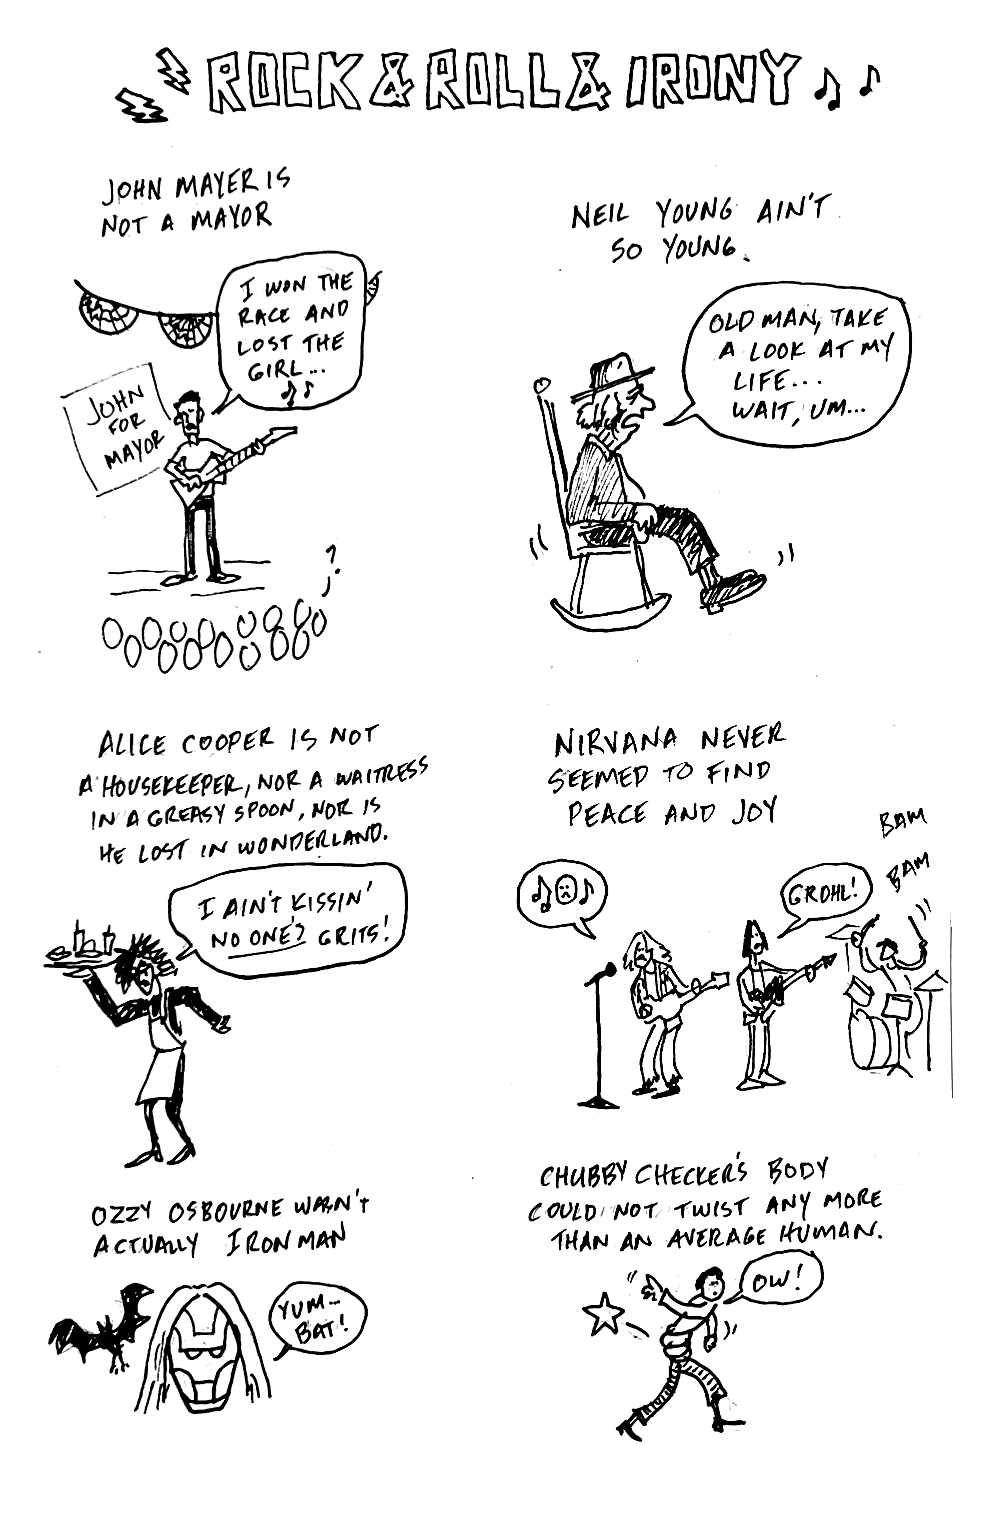 ROCK & ROLL & IRONY
JOHN MAYER IS
NOT A MAYOR
I WON THE
RACE AND
LOST THE
GIRL...
JOHN
FOR
MAYOR
?
NEIL YOUNG AIN'T
SO YOUNG.
OLD MAN, TAKE
A LOOK AT MY
LIFE...
WAIT, UM...
ALICE COOPER IS NOT
A HOUSEKEEPER, NOR A WAITRESS
IN A GREASY SPOON, NOR IS
HE LOST IN WONDERLAND.
I AIN'T KISSIN'
NO ONE'S GRITS!
NIRVANA NEVER
SEEMED TO FIND
PEACE AND JOY
BAM
BAM
GROHL!
OZZY OSBOURNE WASN'T
ACTUALLY IRON MAN
YUM...
BAT!
CHUBBY CHECKER'S BODY
COULD NOT TWIST ANY MORE
THAN AN AVERAGE HUMAN.
OW!